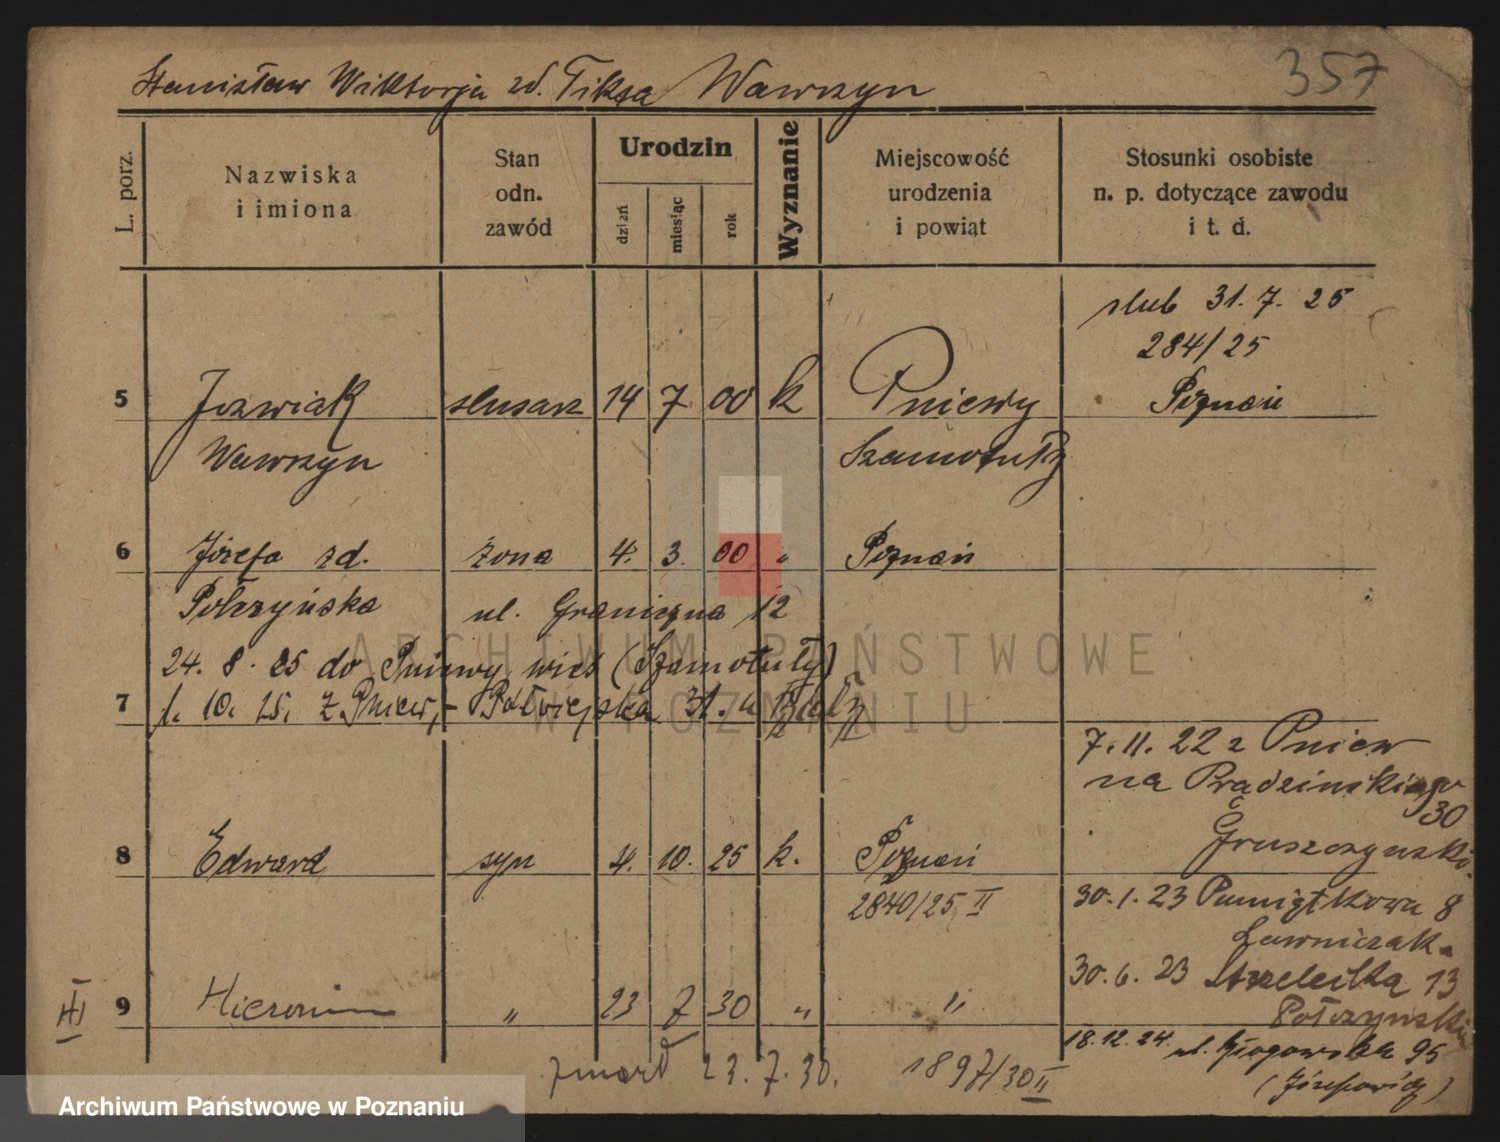 357
Stanisław Wiktorja zd. Tiksa Wawrzyn
L. porz.
Nazwiska
i imiona
Stan
odn.
zawód
Urodzin
dzień
miesiąc
rok
Wyznanie
Miejscowość
urodzenia
i powiat
Stosunki osobiste
n. p. dotyczące zawodu
i t. d.
slub 31. 7. 25
284/25
5 Jozwiak slusarz 14 7 00 k Pniewy Poznań
Wawrzyn Szamotuły
6 Józefa zd. żona 4. 3. 00 " Poznań
Połczyńska ul. Graniczna 12
24. 8. 25 do Pniewy wieś (Szamotuły)
7 1. 10. 25. z Pniew, - Półwiejska 31. u
7. 11. 22 z Pniew
na Prądzinskiego
30
Gruszczynski.
8 Edward syn 4. 10. 25 k. Poznań
2840/25 II
30. 1. 23 Pamiątkowa 8
Ławniczak
30. 6. 23 Strzelecka 13
Połczynski
III 9 Hieronim " 23 7 30 " "
18. 12. 24. ul. Głogowska 95
(Józefowicz)
zmarł 23. 7. 30. 1897/30 II
ARCHIWUM PAŃSTWOWE
W POZNANIU
Archiwum Państwowe w Poznaniu